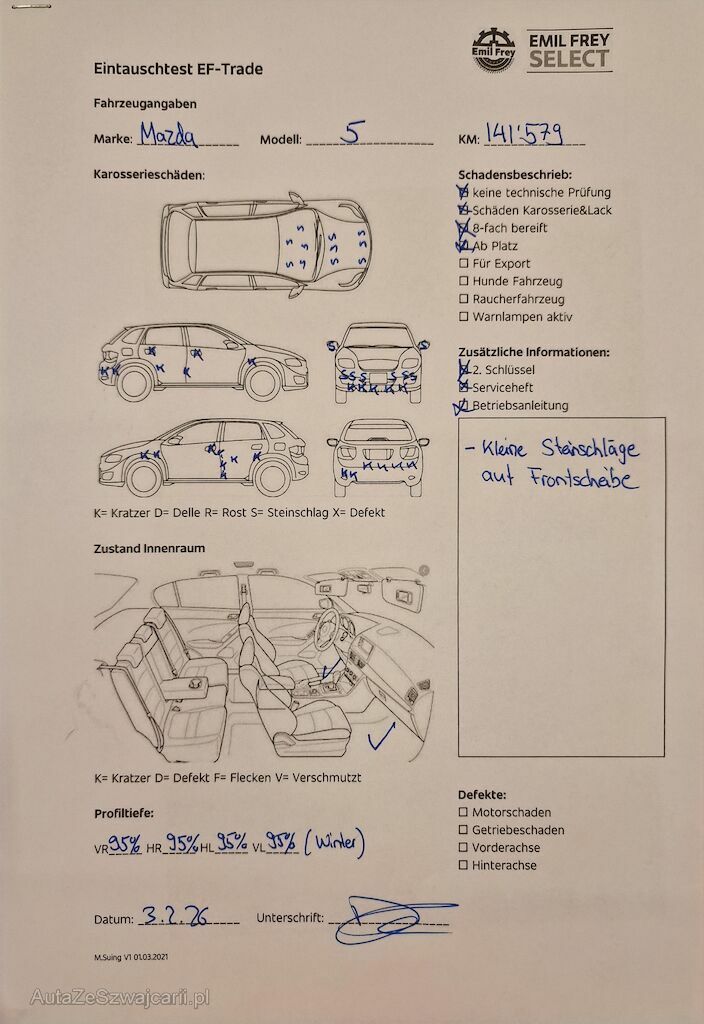 Emil Frey
EMIL FREY
SELECT
Eintauschtest EF-Trade
Fahrzeugangaben
Marke: Mazda Modell: 5 KM: 141'579
Karosserieschäden:
Schadensbeschrieb:
keine technische Prüfung
Schäden Karosserie&Lack
8-fach bereift
Ab Platz
Für Export
Hunde Fahrzeug
Raucherfahrzeug
Warnlampen aktiv
Zusätzliche Informationen:
2. Schlüssel
Serviceheft
Betriebsanleitung
- Kleine Steinschläge
auf Frontscheibe
K= Kratzer D= Delle R= Rost S= Steinschlag X= Defekt
Zustand Innenraum
K= Kratzer D= Defekt F= Flecken V= Verschmutzt
Profiltiefe:
VR 95% HR 95% HL 95% VL 95% (Winter)
Defekte:
Motorschaden
Getriebeschaden
Vorderachse
Hinterachse
Datum: 3.2.26 Unterschrift:
M.Suing V1 01.03.2021
AutaZeSzwajcarii.pl